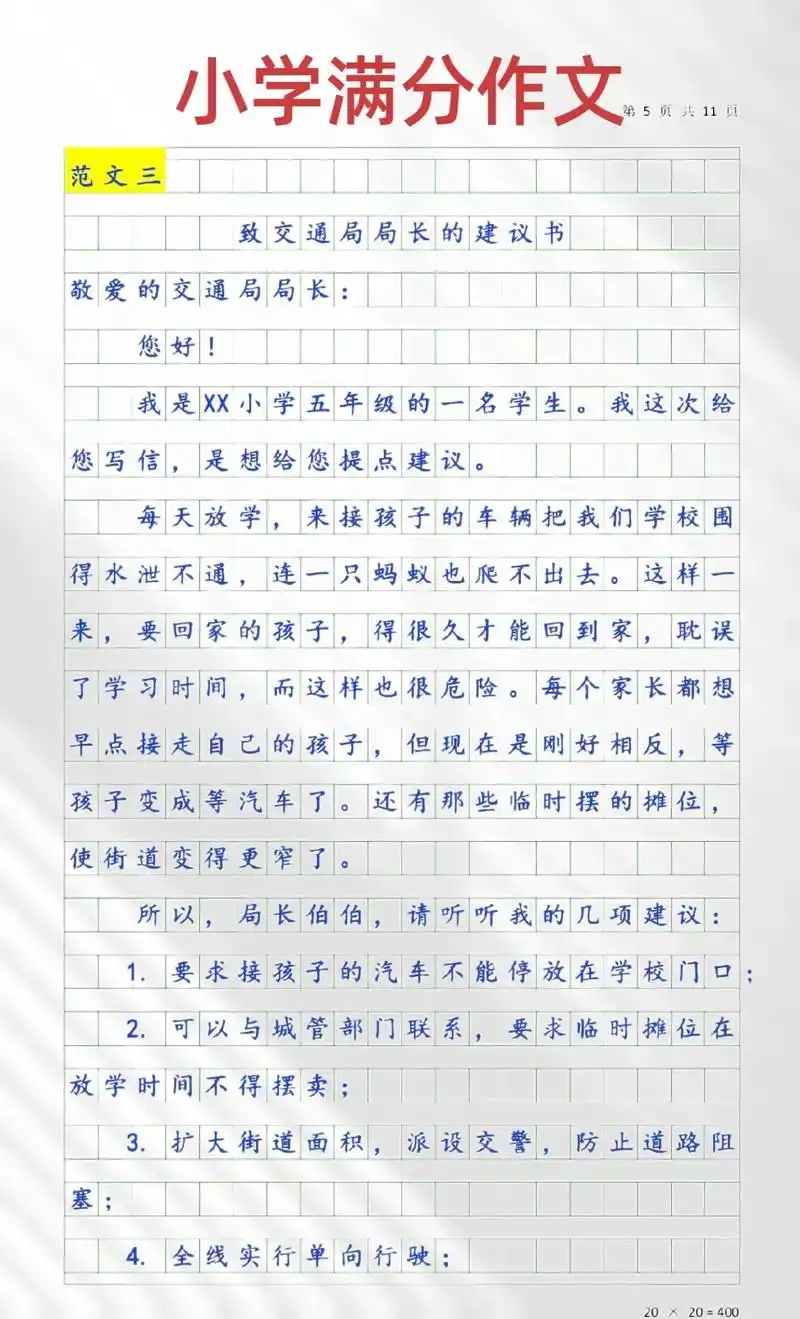 小学满分作文
第 5 页 共 11 页
范文三
致交通局局长的建议书
敬爱的交通局局长：
您好！
我是XX小学五年级的一名学生。我这次给
您写信，是想给您提点建议。
每天放学，来接孩子的车辆把我们学校围
得水泄不通，连一只蚂蚁也爬不出去。这样一
来，要回家的孩子，得很久才能回到家，耽误
了学习时间，而这样也很危险。每个家长都想
早点接走自己的孩子，但现在是刚好相反，等
孩子变成等汽车了。还有那些临时摆的摊位，
使街道变得更窄了。
所以，局长伯伯，请听听我的几项建议：
1. 要求接孩子的汽车不能停放在学校门口；
2. 可以与城管部门联系，要求临时摊位在
放学时间不得摆卖；
3. 扩大街道面积，派设交警，防止道路阻
塞；
4. 全线实行单向行驶；
20 × 20 = 400